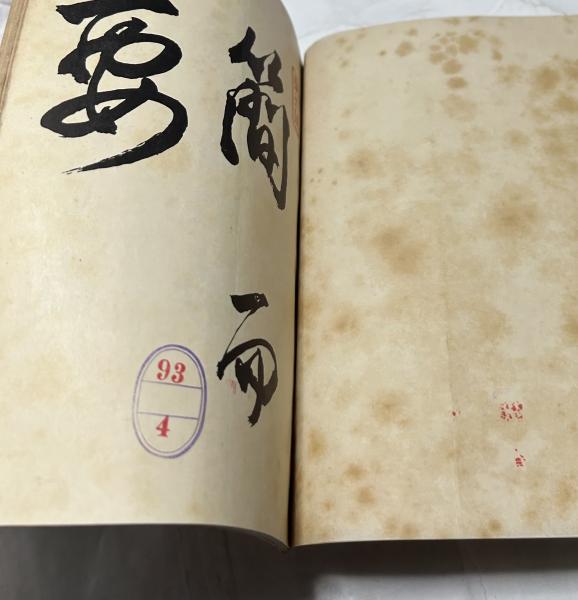 簡而
要
93
4